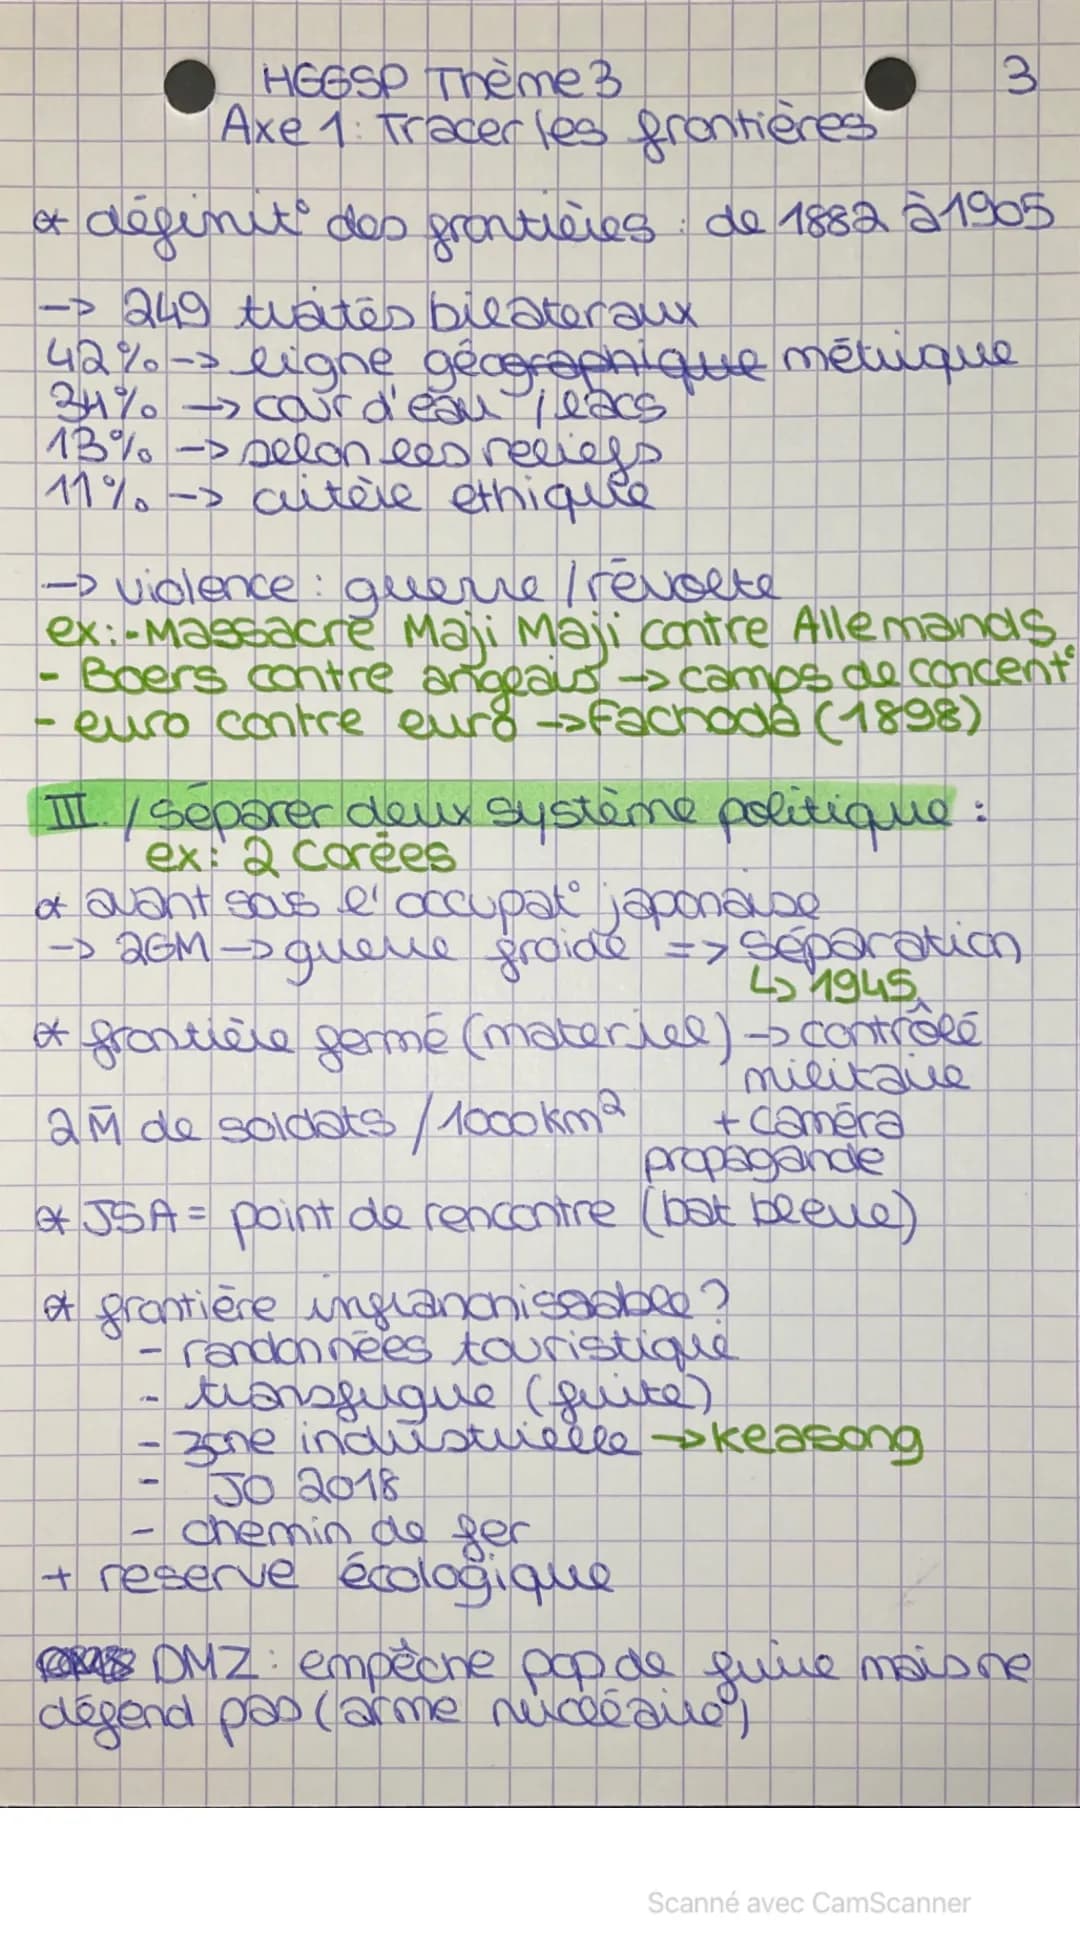 HGGSP Thème 3
3
Axe 1 : Tracer les frontières
* définit° des frontières : de 1882 à 1905
-> 249 traités bilateraux
42% -> ligne géographique métrique
34% -> cour d'eau / lacs
13% -> selon les reliefs
11% -> critère ethique
-> violence : guerre / révolte
ex: - Massacre Maji Maji contre Allemands
- Boers contre angeais -> camps de concent°
- euro contre euro -> Fachoda (1898)
III / séparer deux système politique :
ex: 2 Corées
* avant sous l'occupat° japonaise
-> 2GM -> guerre froide => séparation
↳ 1945
* frontière fermé (materiel) -> contrôlé
militaire
2M de soldats / 1000km² + caméra
propagande
* JSA = point de rencontre (bat bleue)
* frontière infranchissable ?
- randonnées touristique
- transfugue (fuite)
- zone industrielle -> Keasong
- JO 2018
- chemin de fer
+ reserve écologique
DMZ : empêche pop de fuire mais ne
défend pas (arme nucléaire)
Scanné avec CamScanner